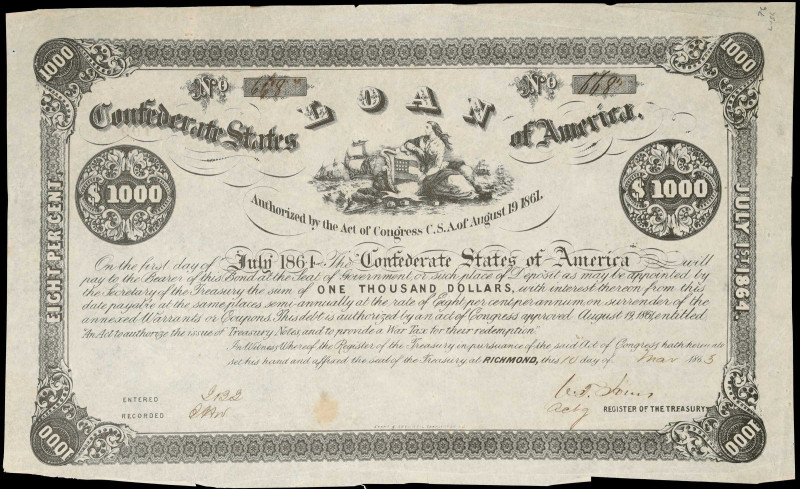 1000 1000
No 668 No 668
LOAN
Confederate States of America.
$1000 $1000
Authorized by the Act of Congress C.S.A. of August 19 1861.
EIGHT PER CENT.
JULY 1st 1864.
On the first day of July 1864 The Confederate States of America will
pay to the Bearer of this Bond at the Seat of Government or such place of Deposit as may be appointed by
the Secretary of the Treasury the sum of ONE THOUSAND DOLLARS, with interest thereon from this
date payable at the same places semi-annually at the rate of Eight per cent per annum on surrender of the
annexed Warrants or Coupons. This debt is authorized by an act of Congress approved August 19, 1861, entitled
"An Act to authorize the issue of Treasury Notes, and to provide a War Tax for their redemption."
In Witness Whereof, the Register of the Treasury in pursuance of the said Act of Congress hath hereunto
set his hand and affixed the seal of the Treasury at RICHMOND, this 10 day of Mar 1863
ENTERED 2132
RECORDED
Actg REGISTER OF THE TREASURY
1000 1000